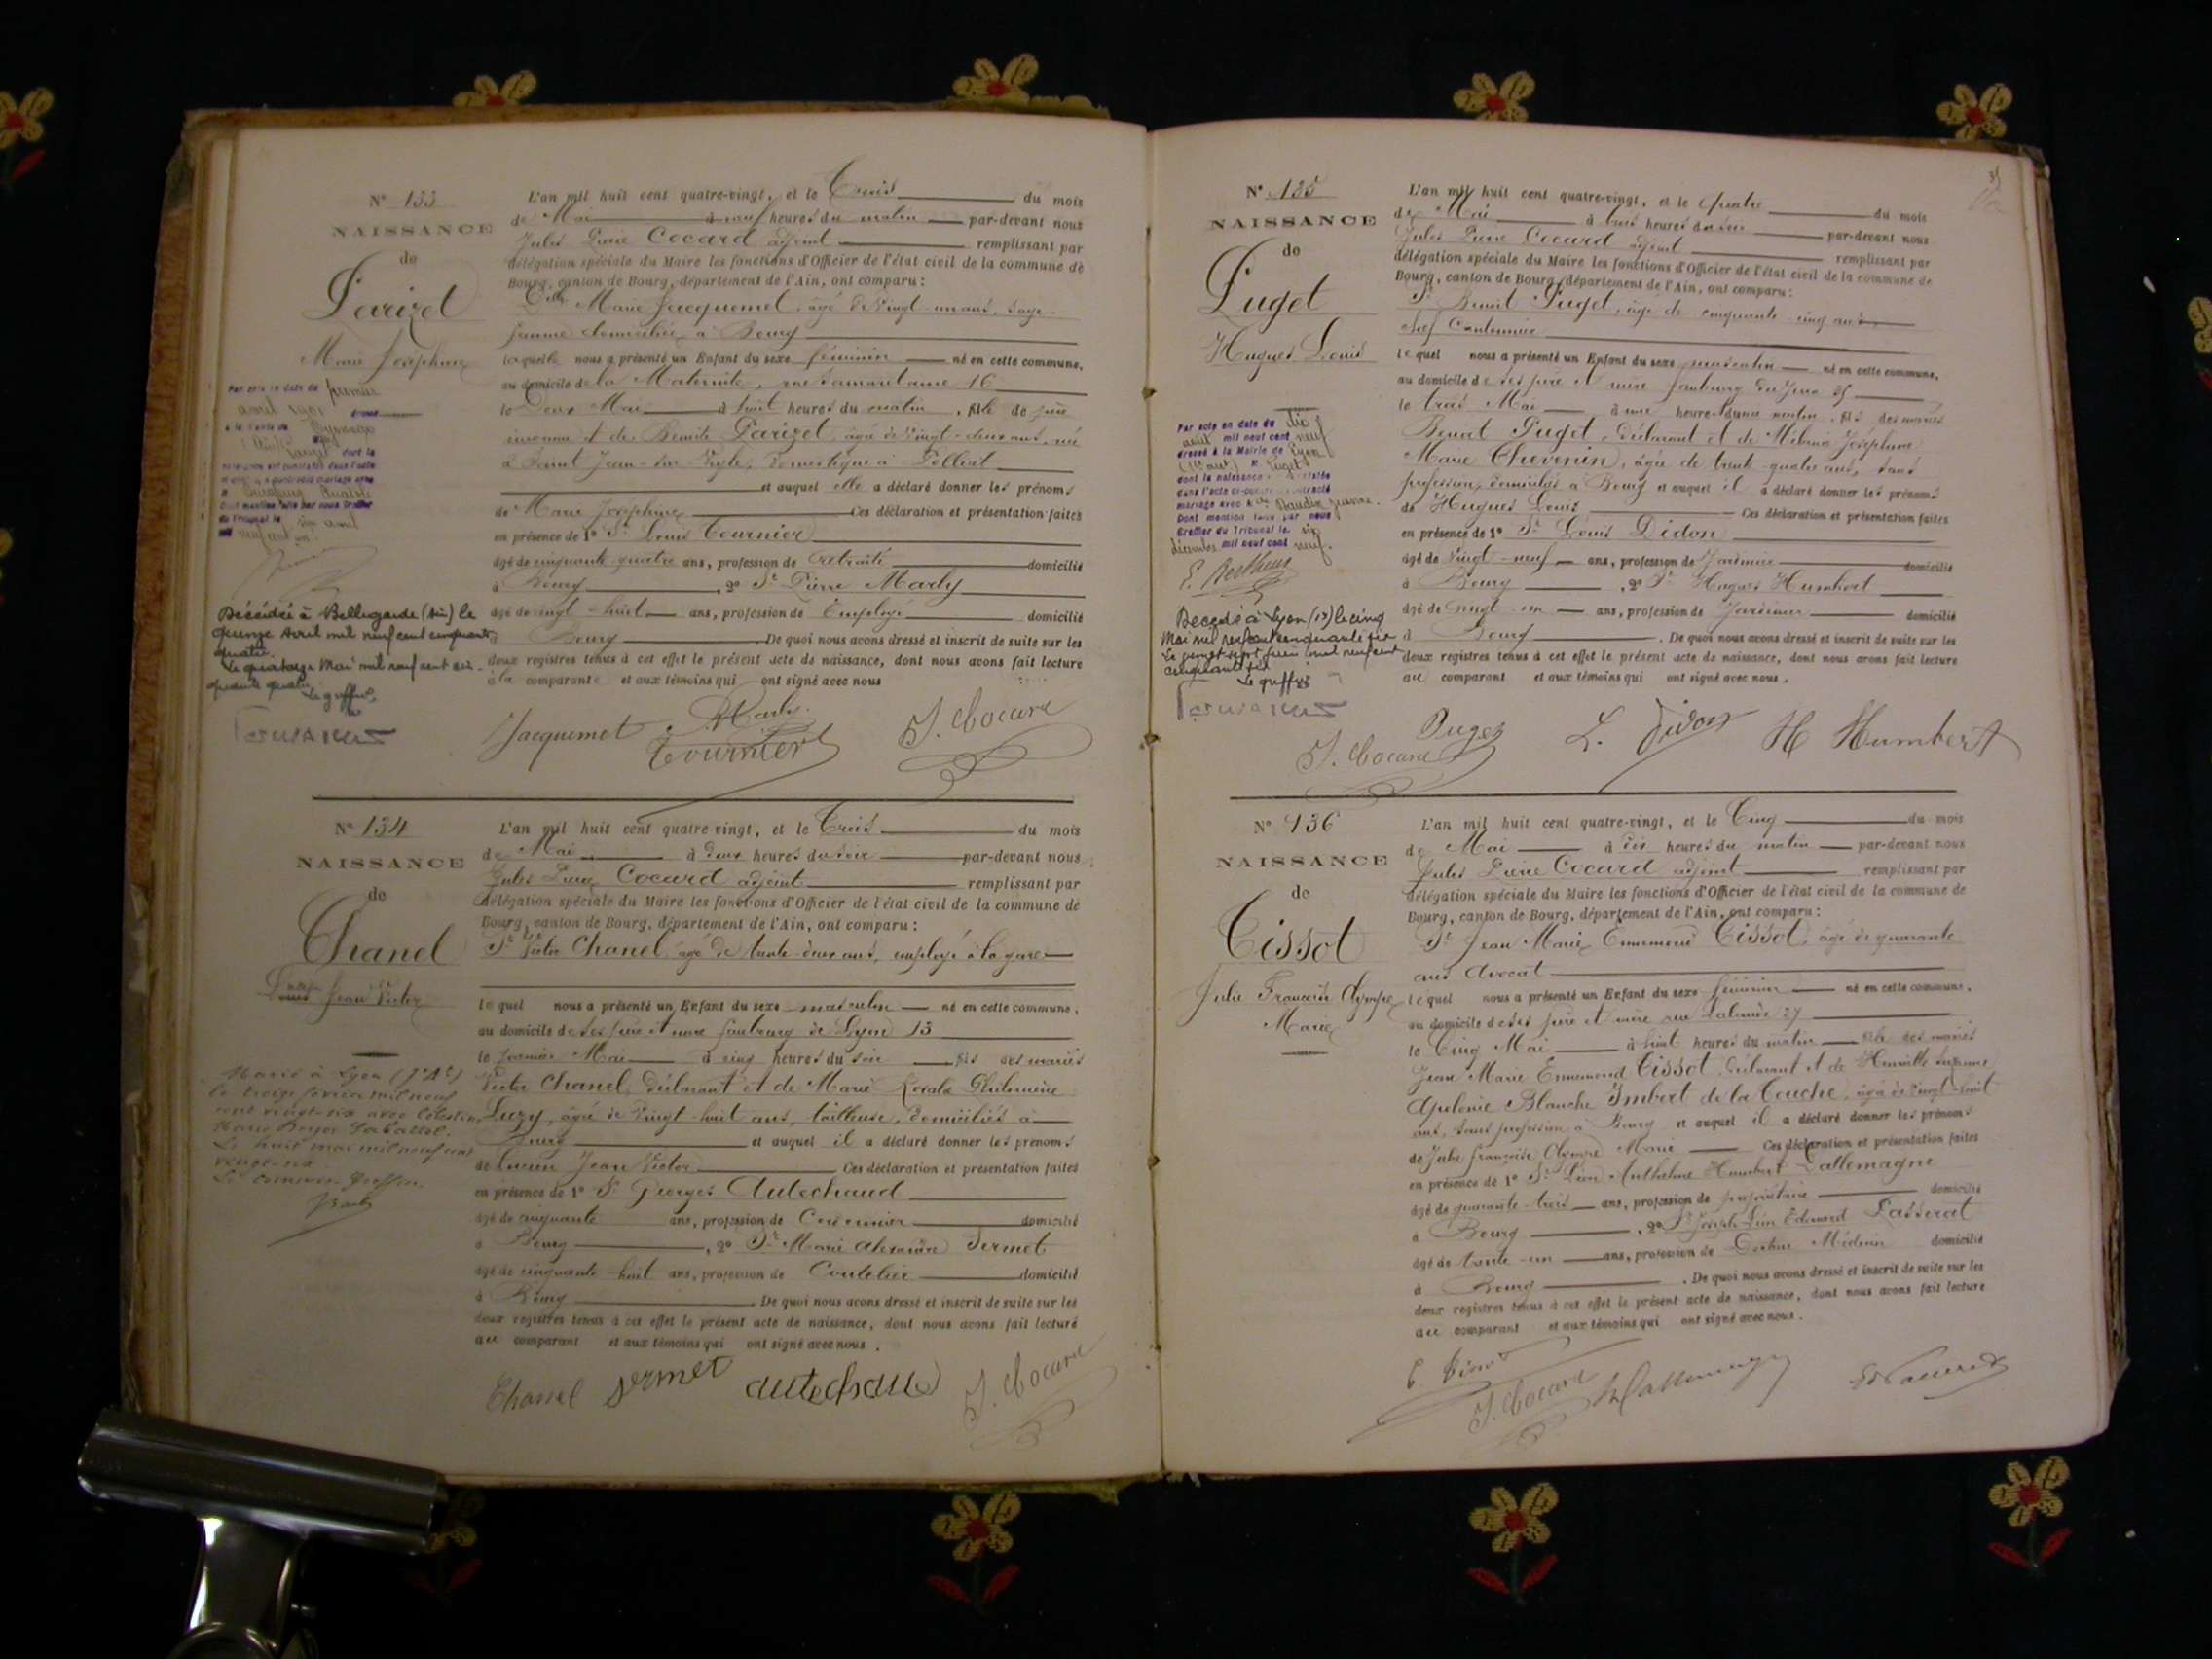 N° 133
NAISSANCE
de
Parizet
Marie Joséphine
Par acte en date du premier
avril 1901 dressé
à la Mairie de
dont la
naissance est constatée dans l'acte
mariage avec
Dont mention faite par nous Greffier
du Tribunal le avril
mil neuf cent un
Décédée à Bellegarde (Ain) le
quinze Avril mil neuf cent cinquante
quatre.
Le quatorze Mai mil neuf cent cin-
quante quatre
Le greffier,
L'an mil huit cent quatre-vingt, et le Trois du mois
de Mai à neuf heures du matin par-devant nous
Jules Pierre Cocard adjoint remplissant par
délégation spéciale du Maire les fonctions d'Officier de l'état civil de la commune de
Bourg, canton de Bourg, département de l'Ain, ont comparu:
Delle Marie Jacquemet, âgée de vingt-un ans, sage-
femme domiciliée à Bourg
laquelle nous a présenté un Enfant du sexe féminin né en cette commune,
au domicile de la Maternité, rue Samaritaine 16
le Deux Mai à huit heures du matin, fille de père
inconnu et de Benoite Parizet, âgée de vingt-deux ans, née
à Saint Jean-sur-Veyle, domestique à Polliat
et auquel elle a déclaré donner les prénoms
de Marie Joséphine Ces déclaration et présentation faites
en présence de 1° Sr Louis Tournier
âgé de cinquante-quatre ans, profession de retraité domicilié
à Bourg, 2° Sr Pierre Marly
âgé de vingt-huit ans, profession de Employé domicilié
à Bourg. De quoi nous avons dressé et inscrit de suite sur les
deux registres tenus à cet effet le présent acte de naissance, dont nous avons fait lecture
à la comparante et aux témoins qui ont signé avec nous
Jacquemet Marly Tournier J. Cocard
N° 134
NAISSANCE
de
Chanel
Jean Victor
Marié à Lyon (7e At)
le treize février mil neuf
cent vingt-six avec Célestine
Marie
Le huit mars mil neuf cent
vingt-six
Le Commis-Greffier
L'an mil huit cent quatre-vingt, et le Trois du mois
de Mai à deux heures du soir par-devant nous
Jules Pierre Cocard adjoint remplissant par
délégation spéciale du Maire les fonctions d'Officier de l'état civil de la commune de
Bourg, canton de Bourg, département de l'Ain, ont comparu:
Sr Victor Chanel, âgé de trente-deux ans, employé à la gare
lequel nous a présenté un Enfant du sexe masculin né en cette commune,
au domicile de ses père et mère faubourg de Lyon 13
le premier Mai à cinq heures du soir fils des mariés
Victor Chanel, déclarant et de Marie Rosalie Philomène
Luzy, âgée de vingt-huit ans, tailleuse, domiciliés à
Bourg et auquel il a déclaré donner les prénoms
de Lucien Jean Victor Ces déclaration et présentation faites
en présence de 1° Sr Georges Autechaud
âgé de cinquante ans, profession de Cordonnier domicilié
à Bourg, 2° Sr Marie Alexandre Sermet
âgé de cinquante-huit ans, profession de Coutelier domicilié
à Bourg. De quoi nous avons dressé et inscrit de suite sur les
deux registres tenus à cet effet le présent acte de naissance, dont nous avons fait lecture
au comparant et aux témoins qui ont signé avec nous.
Chanel Sermet autechaud J. Cocard
N° 135
NAISSANCE
de
Puget
Hugues Louis
Par acte en date du dix
août mil neuf cent neuf
dressé à la Mairie de Lyon
M. Puget
dont la naissance est constatée
dans l'acte ci-contre a contracté
mariage avec Mlle Baudin Jeanne.
Dont mention faite par nous
Greffier du Tribunal le six
décembre mil neuf cent neuf.
E. Berthoux
Décédé à Lyon le cinq
Mai mil neuf cent cinquante six
Le vingt sept juin mil neuf cent
cinquante six
Le greffier
L'an mil huit cent quatre-vingt, et le Quatre du mois
de Mai à trois heures du soir par-devant nous
Jules Pierre Cocard adjoint remplissant par
délégation spéciale du Maire les fonctions d'Officier de l'état civil de la commune de
Bourg, canton de Bourg, département de l'Ain, ont comparu:
Sr Benoit Puget, âgé de cinquante-cinq ans
chef Cantonnier
lequel nous a présenté un Enfant du sexe masculin né en cette commune,
au domicile de ses père et mère faubourg du Jura 35
le trois Mai à une heure du matin, fils des mariés
Benoit Puget, déclarant et de Mélanie Joséphine
Marie Chevenin, âgée de trente-quatre ans, sans
profession, domiciliés à Bourg et auquel il a déclaré donner les prénoms
de Hugues Louis Ces déclaration et présentation faites
en présence de 1° Sr Louis Didon
âgé de vingt-neuf ans, profession de Jardinier domicilié
à Bourg, 2° Sr Hugues Humbert
âgé de vingt-un ans, profession de Jardinier domicilié
à Bourg. De quoi nous avons dressé et inscrit de suite sur les
deux registres tenus à cet effet le présent acte de naissance, dont nous avons fait lecture
au comparant et aux témoins qui ont signé avec nous.
Puget L. Didon H Humbert
J. Cocard
N° 136
NAISSANCE
de
Tissot
Julie Françoise Olympe
Marie
L'an mil huit cent quatre-vingt, et le Cinq du mois
de Mai à dix heures du matin par-devant nous
Jules Pierre Cocard adjoint remplissant par
délégation spéciale du Maire les fonctions d'Officier de l'état civil de la commune de
Bourg, canton de Bourg, département de l'Ain, ont comparu:
Sr Jean Marie Ennemond Tissot, âgé de quarante
ans Avocat
lequel nous a présenté un Enfant du sexe féminin né en cette commune,
au domicile de ses père et mère rue Lalande 27
le Cinq Mai à huit heures du matin fille des mariés
Jean Marie Ennemond Tissot, déclarant et de Henriette Suzanne
Apolonie Blanche Imbert de la Touche, âgée de vingt-huit
ans, sans profession à Bourg et auquel il a déclaré donner les prénoms
de Julie Françoise Olympe Marie Ces déclaration et présentation faites
en présence de 1° Sr Léon Anthelme Humbert Dallemagne
âgé de quarante-trois ans, profession de propriétaire domicilié
à Bourg, 2° Sr Joseph Léon Edouard Passerat
âgé de trente-un ans, profession de Docteur Médecin domicilié
à Bourg. De quoi nous avons dressé et inscrit de suite sur les
deux registres tenus à cet effet le présent acte de naissance, dont nous avons fait lecture
au comparant et aux témoins qui ont signé avec nous.
J. Cocard